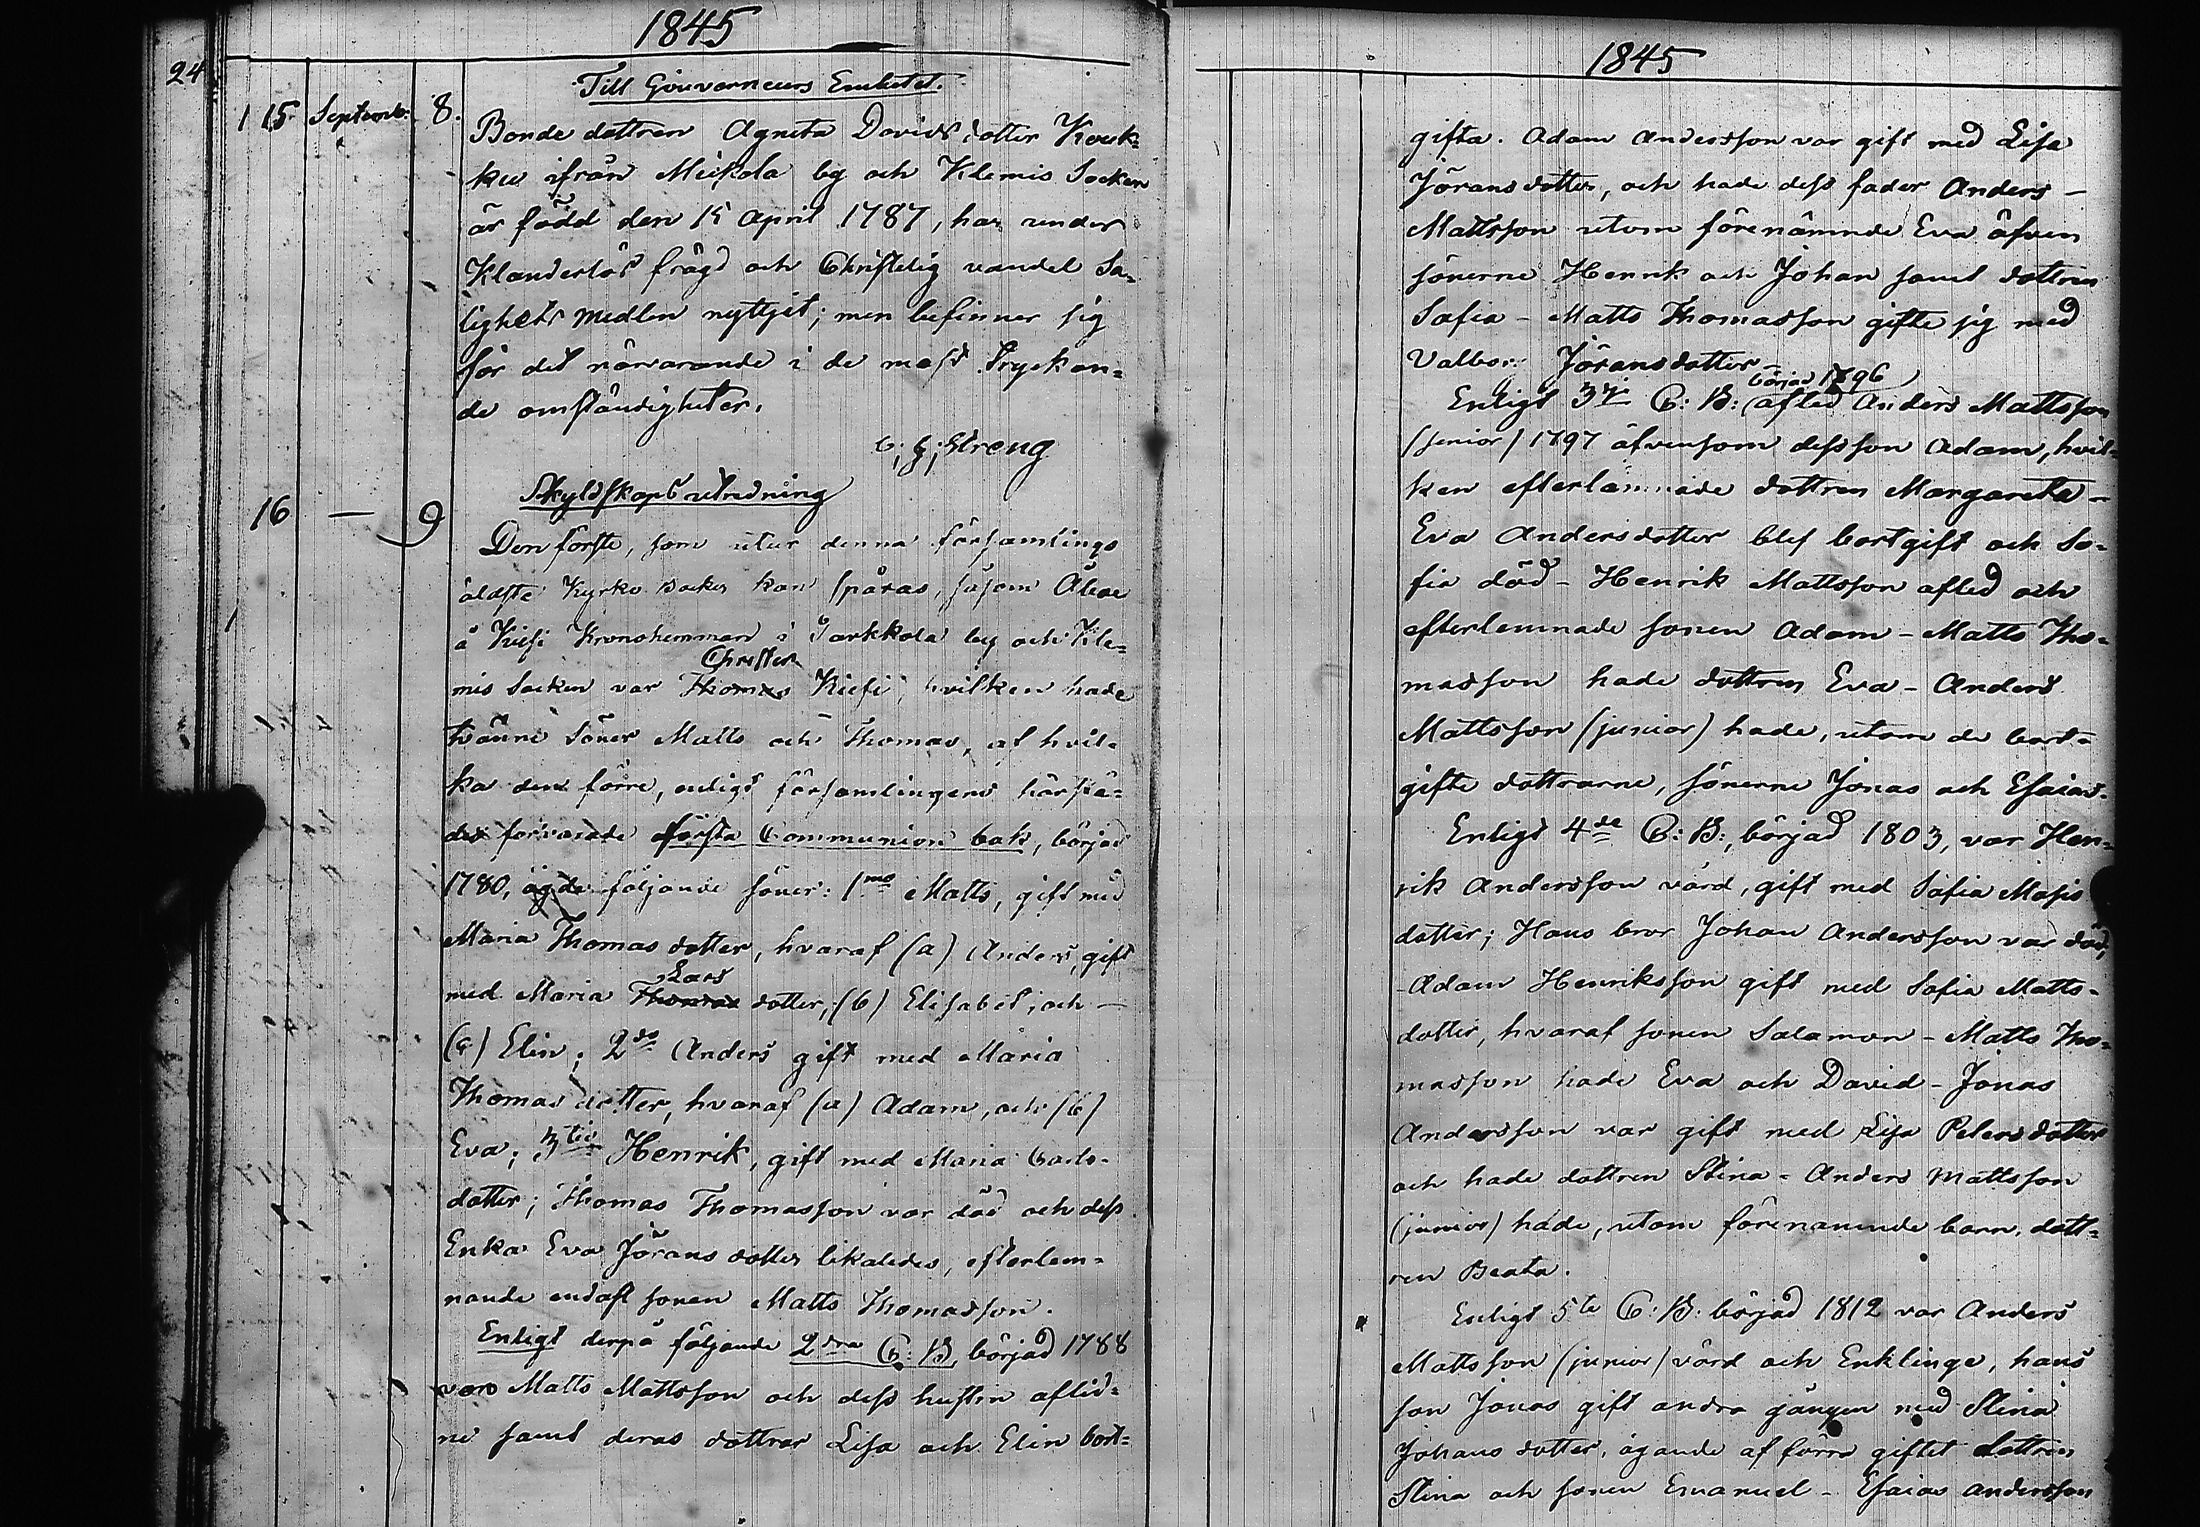 1845
24
Till Gouverneurs Embetet.
115 Septemb: 8.
Bonde dottren Agneta Davids dotter Kouk-
ku ifrån Meikola by och Klemis Socken
är född den 15 April 1787, har under
Klanderlös frägd och Christelig vandel Sa-
lighets medlen nyttjet; men befinner sig
för det närvarande i de mest Tryckan-
de omständigheter.
C: G: Streng
Skyldskaps utredning
16 — 9
Den förste, som utur denna församlings
äldste Kyrko böcker kan spåras, såsom Åboe
å Kiesi Kronohemman i Tarkkola by och Kle-
Christer
mis Socken var Thomas Kiesi, hvilken hade
tvänne Söner Matts och Thomas, af hvil-
ka den förre, enligt församlingens härstä-
des förvarade första Communion bok, börjad
1780, ägde följande söner: 1mo Matts, gift med
Maria Thomas dotter, hvaraf (a) Anders, gift
Lars
med Maria Thomas dotter; (b) Elisabet; och —
(c) Elin; 2do Anders gift med Maria
Thomas dotter, hvaraf (a) Adam, och (b)
Eva; 3tio Henrik, gift med Maria Carls-
dotter; Thomas Thomasson var död och dess
Enka Eva Jörans dotter likaledes, efterlem-
nande endast sonen Matts Thomasson.
Enligt derpå följande 2dra C: B, börjad 1788
voro Matts Mattsson och dess hustru aflid-
ne samt deras döttrar Lisa och Elin bort-
1845
gifta. Adam Andersson var gift med Lisa
Jörans dotter, och hade dess fader Anders —
Mattsson utom förenämnde Eva äfven
sönerne Henrik och Johan samt dottren
Sofia — Matts Thomasson gifte sig med
Valbor: Jöransdotter —
börjad 1796
Enligt 3je C: B: afled Anders Mattsson
(senior) 1797 äfvensom dess son Adam, hvil-
ken efterlämnade dottren Margareta —
Eva Andersdotter blef bortgift och So-
fia död — Henrik Mattsson afled och
efterlemnade sonen Adam — Matts Tho-
masson hade dottren Eva — Anders
Mattsson (junior) hade, utom de bort-
gifte döttrarne, sönerne Jonas och Esaias.
Enligt 4de C: B:, börjad 1803, var Hen-
rik Andersson värd, gift med Sofia Mosis
dotter; Hans bror Johan Andersson var död,
— Adam Henriksson gift med Sofia Matts-
dotter, hvaraf sonen Salamon — Matts Tho-
masson hade Eva och David — Jonas
Andersson var gift med Lisa Petersdotter
och hade dottren Stina — Anders Mattsson
(junior) hade, utom förenämnde barn, dott-
ren Beata.
Enligt 5te C: B: börjad 1812 var Anders
Mattsson (junior) värd och Enklinge, hans
son Jonas gift andra gången med Stina
Johans dotter, ägande af förra giftet dottren
Stina och sonen Emanuel — Esaias Andersson